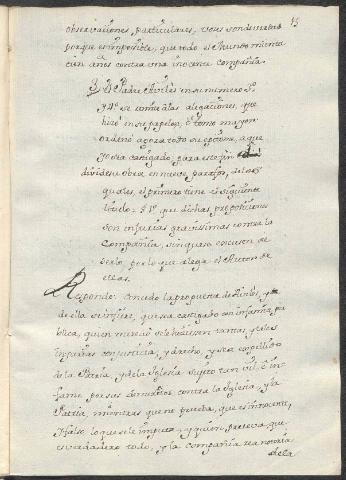 15
observaciones particulares, veréis son demostra
porque es imposible, que todo el Mundo mienta
cien años contra una inocente Compañia.
3. El Padre Aviles in su numero 5.
se contra las alegaciones, que
hize in su papelon, ò tomo mayor
ordenó agora todo su opusme, a que
yo sea castigado, para este fin
divide su obra en nueve parrafos, de los
quales, el primero tiene el siguiente
titulo: § 1º. que dichas proposiciones
son injurias gravissimas contra la
Compañia, sin que so escusen de
serlo, por lo que alega el Autor de
ellas.
Respondo: Concedo la propuesta de Aviles, y
de ella se infiere, que sea castigado con infamia pu
blica, quien mereció se le hiciesen tantas, y tales
injurias con justicia, y derecho, y sea expelido
de la Patria, y de la Iglesia sujeto tan vil, è in
fame por sus dementos contra la Iglesia, y la
Patria, mientras que no prueba, que es inocente,
y falso lo que se le imputa, y quien prueva, que
es verdadero todo, y la Compañia rea notoria
de la